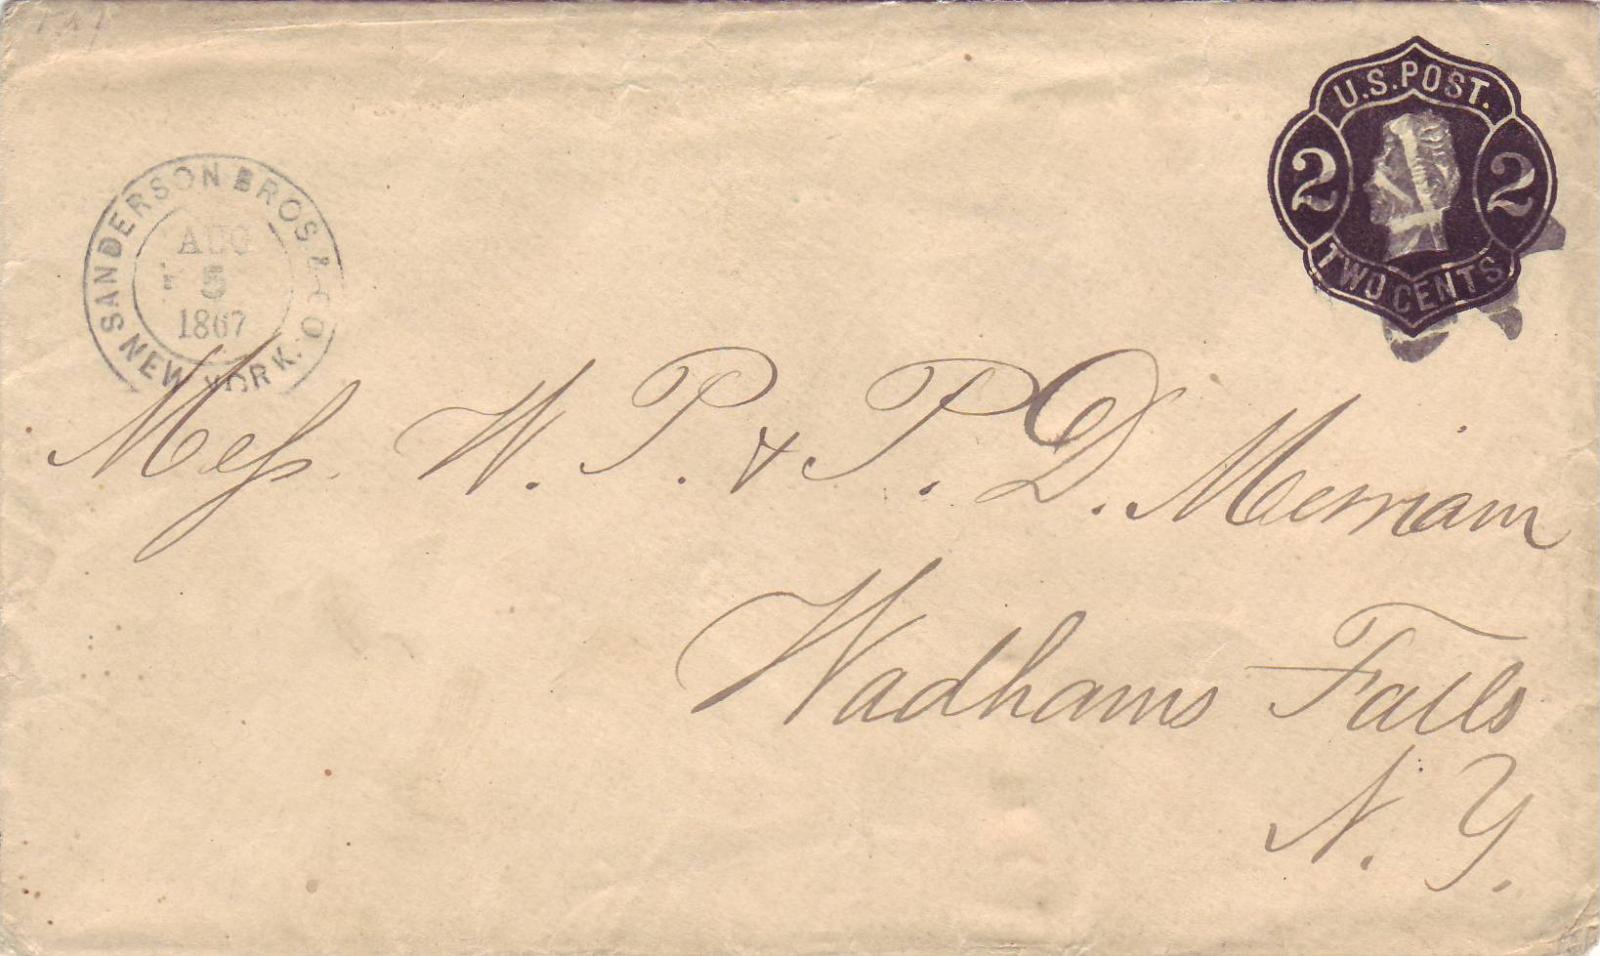 U.S. POST.
2 2
TWO CENTS
SANDERSON BROS & CO
AUG
5
1867
NEW YORK.
Mess. W. P. & P. D. Merriam
Wadhams Falls
N. Y.